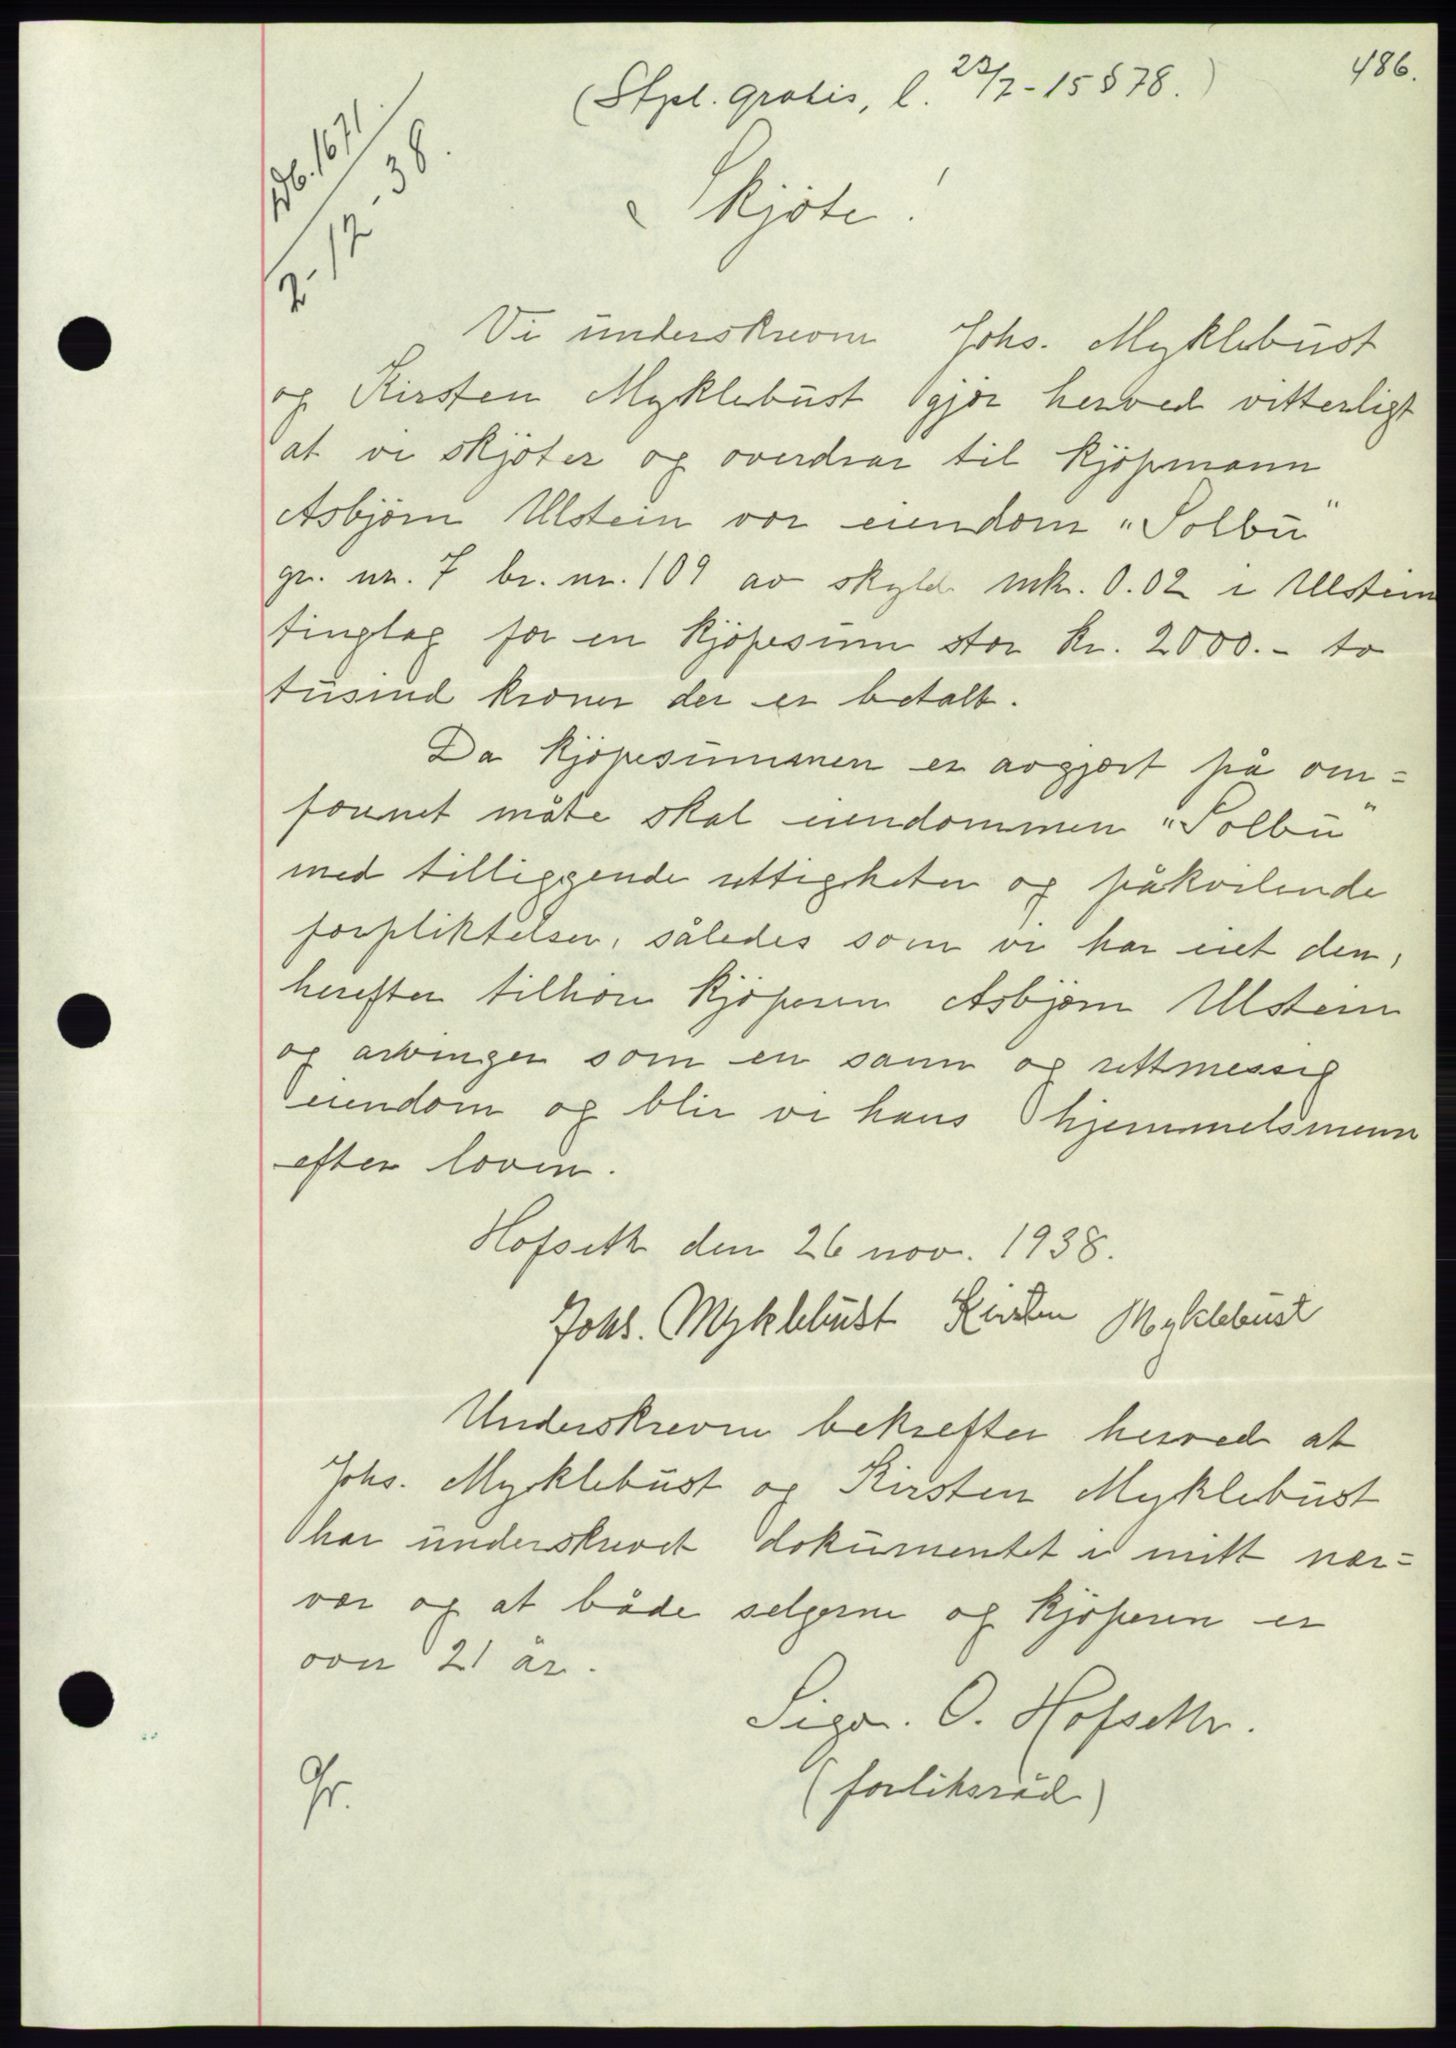 486.
(Stpl. gratis, l. 23/7-15 § 78.)
Db. 1671.
2-12-38.
Skjöte!
Vi underskrevne Johs. Myklebust
og Kirsten Myklebust gjör herved vitterligt
at vi skjöter og overdrar til kjöpmann
Asbjörn Ulstein vor eiendom "Solbu"
gr. nr. 7 br. nr. 109 av skyld mk. 0.02 i Ulstein
tinglag for en kjöpesum stor kr. 2000.- to
tusind kroner der er betalt.
Da kjöpesummen er avgjort på om=
forenet måte skal eiendommen "Solbu"
med tilliggende rettigheter og påkvilende
forpliktelser, således som vi har eiet den,
herefter tilhöre kjöperen Asbjörn Ulstein
og arvinger som en sann og rettmessig
eiendom og blir vi hans hjemmelsmenn
efter loven.
Hofseth den 26 nov. 1938.
Johs. Myklebust Kirsten Myklebust
Underskrevne bekrefter herved at
Johs. Myklebust og Kirsten Myklebust
har underskrevet dokumentet i mitt nær=
vær og at både selgerne og kjöperen er
over 21 år.
Sigv. O. Hofseth.
(forliksråd)
Gr.